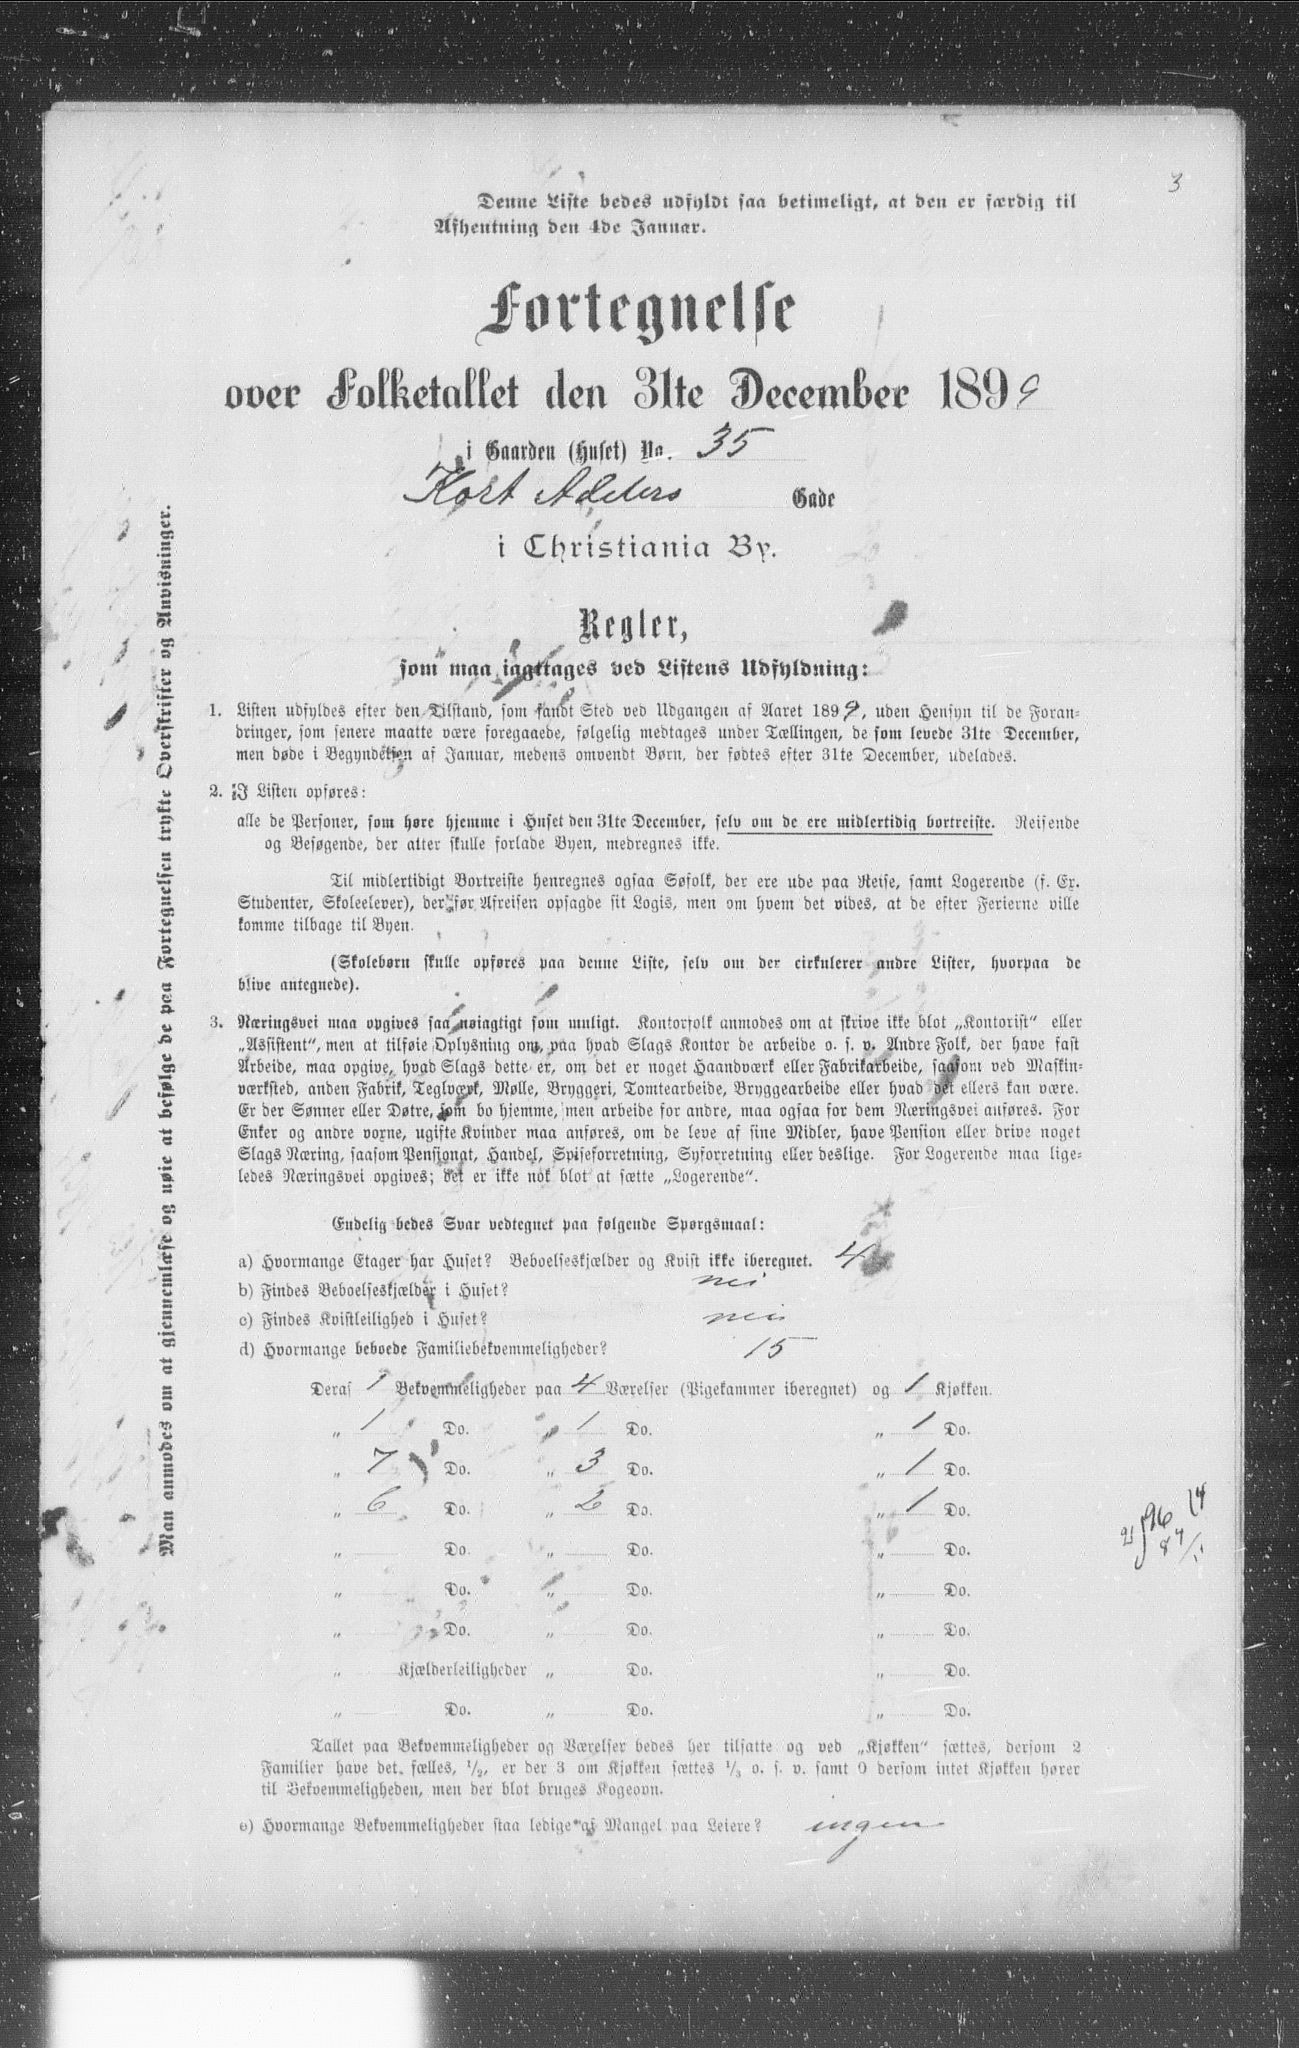 3
Denne Liste bedes udfyldt saa betimeligt, at den er færdig til
Afhentning den 4de Januar.
Fortegnelse
over Folketallet den 31te December 1899
i Gaarden (Huset) No. 35
Kort Adelers Gade
i Christiania By.
Regler,
som maa iagttages ved Listens Udfyldning:
1. Listen udfyldes efter den Tilstand, som fandt Sted ved Udgangen af Aaret 1899, uden Hensyn til de Foran-
dringer, som senere maatte være foregaaede, følgelig medtages under Tællingen, de som levede 31te December,
men døde i Begyndelsen af Januar, medens omvendt Børn, der fødtes efter 31te December, udelades.
2. I Listen opføres:
alle de Personer, som høre hjemme i Huset den 31te December, selv om de ere midlertidig bortreiste. Reisende
og Besøgende, der atter skulle forlade Byen, medregnes ikke.
Til midlertidigt Bortreiste henregnes ogsaa Søfolk, der ere ude paa Reise, samt Logerende (f. Ex.
Studenter, Skoleelever), der før Afreisen opsagde sit Logis, men om hvem det vides, at de efter Ferierne ville
komme tilbage til Byen.
(Skolebørn skulle opføres paa denne Liste, selv om der cirkulerer andre Lister, hvorpaa de
blive antegnede).
3. Næringsvei maa opgives saa nøiagtigt som muligt. Kontorfolk anmodes om at skrive ikke blot „Kontorist“ eller
„Assistent“, men at tilføie Oplysning om, paa hvad Slags Kontor de arbeide o. s. v. Andre Folk, der have fast
Arbeide, maa opgive, hvad Slags dette er, om det er noget Haandværk eller Fabrikarbeide, saasom ved Maskin-
værksted, anden Fabrik, Teglværk, Mølle, Bryggeri, Tomtearbeide, Bryggearbeide eller hvad det ellers kan være.
Er der Sønner eller Døtre, som bo hjemme, men arbeide for andre, maa ogsaa for dem Næringsvei anføres. For
Enker og andre voxne, ugifte Kvinder maa anføres, om de leve af sine Midler, have Pension eller drive noget
Slags Næring, saasom Pensionat, Handel, Spiseforretning, Syforretning eller deslige. For Logerende maa lige-
ledes Næringsvei opgives; det er ikke nok blot at sætte „Logerende“.
Endelig bedes Svar vedtegnet paa følgende Spørgsmaal:
a) Hvormange Etager har Huset? Beboelseskjælder og Kvist ikke iberegnet. 4
b) Findes Beboelseskjælder i Huset? nei
c) Findes Kvistleilighed i Huset? nei
d) Hvormange beboede Familiebekvemmeligheder? 15
Deraf 1 Bekvemmeligheder paa 4 Værelser (Pigekammer iberegnet) og 1 Kjøkken.
„ 1 Do. „ 1 Do. „ 1 Do.
„ 7 Do. „ 3 Do. „ 1 Do.
„ 6 Do. „ 2 Do. „ 1 Do.
„ Do. „ Do. „ Do.
„ Do. „ Do. „ Do.
„ Do. „ Do. „ Do.
„ Kjælderleiligheder „ Do. „ Do.
„ Do. „ Do. „ Do.
Tallet paa Bekvemmeligheder og Værelser bedes her tilsatte og ved „Kjøkken“ sættes, dersom 2
Familier have det fælles, 1/2, er der 3 om Kjøkken sættes 1/3 o. s. v. samt 0 dersom intet Kjøkken hører
til Bekvemmeligheden, men der blot bruges Kogeovn.
e) Hvormange Bekvemmeligheder staa ledige af Mangel paa Leiere? ingen
Man anmodes om at gjennemlæse og nøie at befølge de paa Fortegnelsen trykte Overskrifter og Anvisninger.